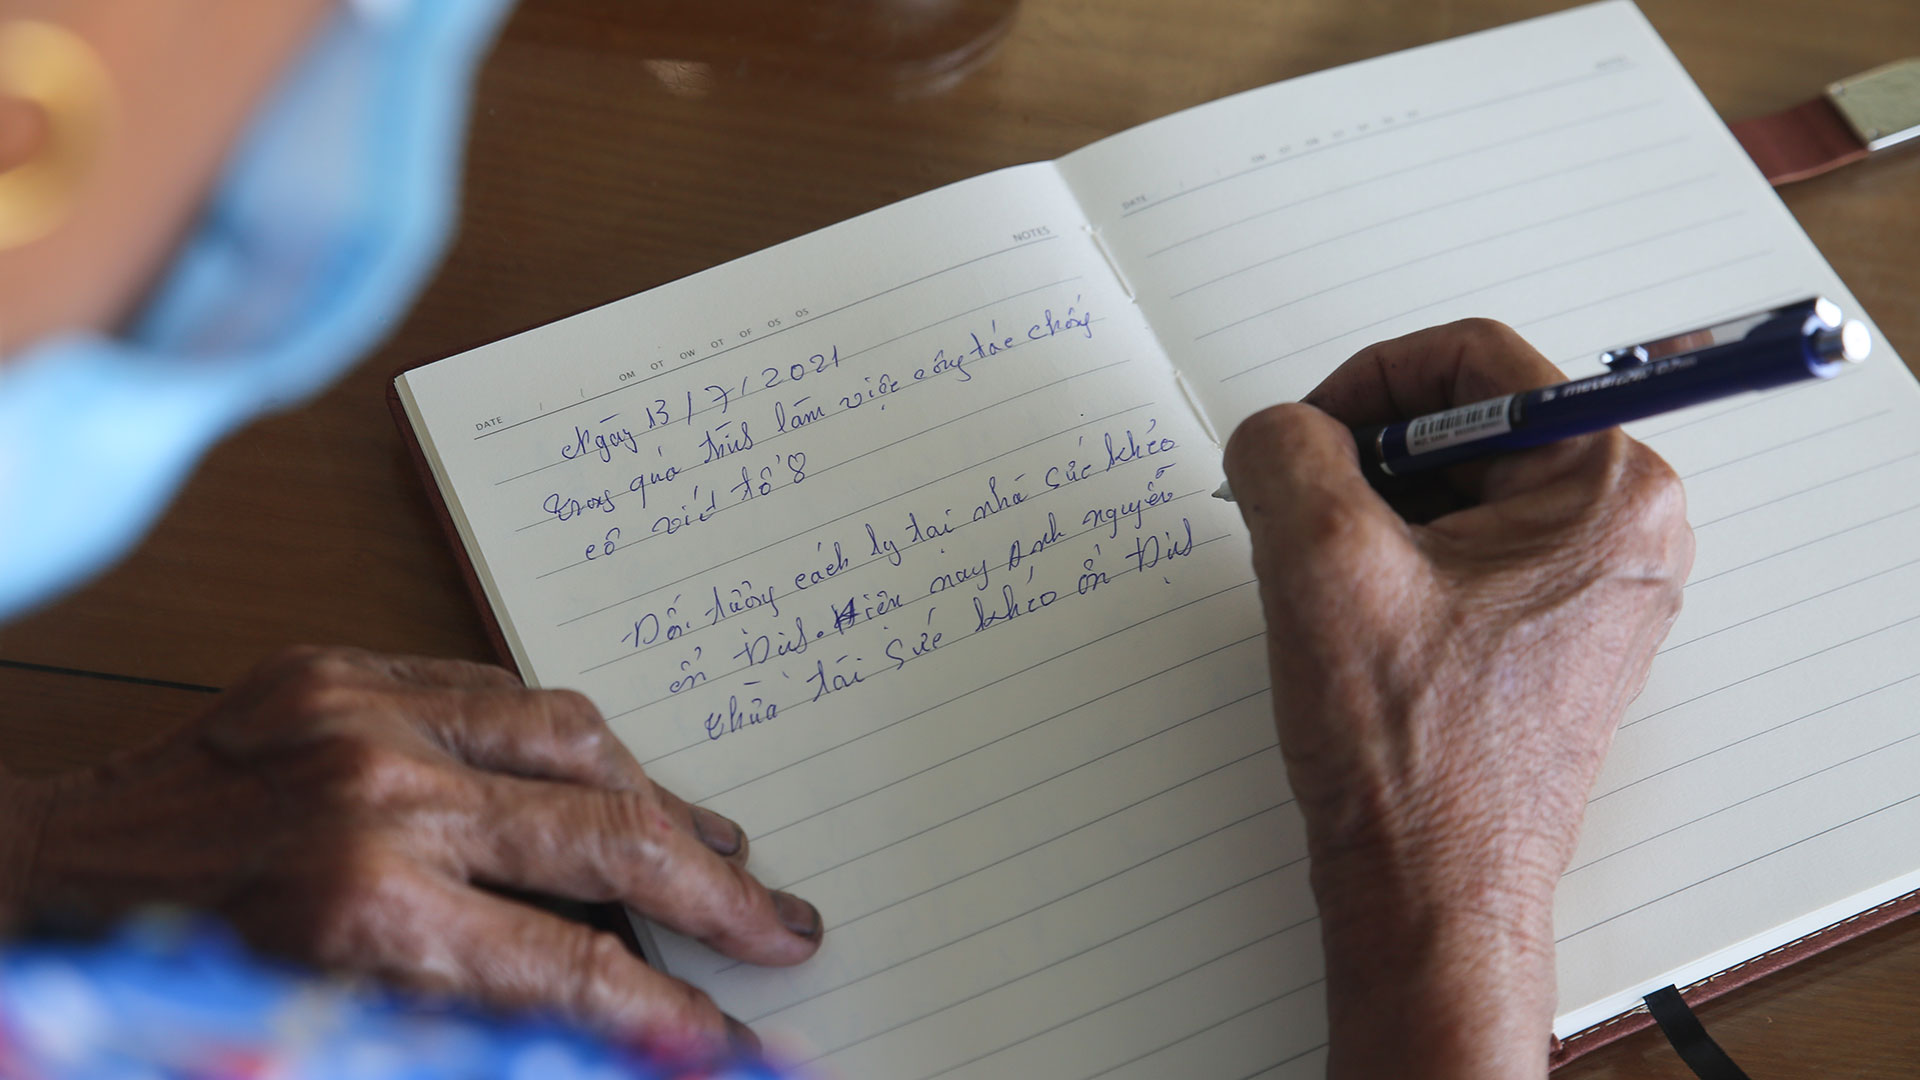 NOTES
DATE / / OM OT OW OT OF OS OS
Ngày 13/7/2021
trong quá trình làm việc công tác chống
cô vít tổ 8
Đối tường cách ly tại nhà sức khẻo
ổn định. Hiện nay Anh nguyễn
thừa tái sức khẻo ổn Định
DATE